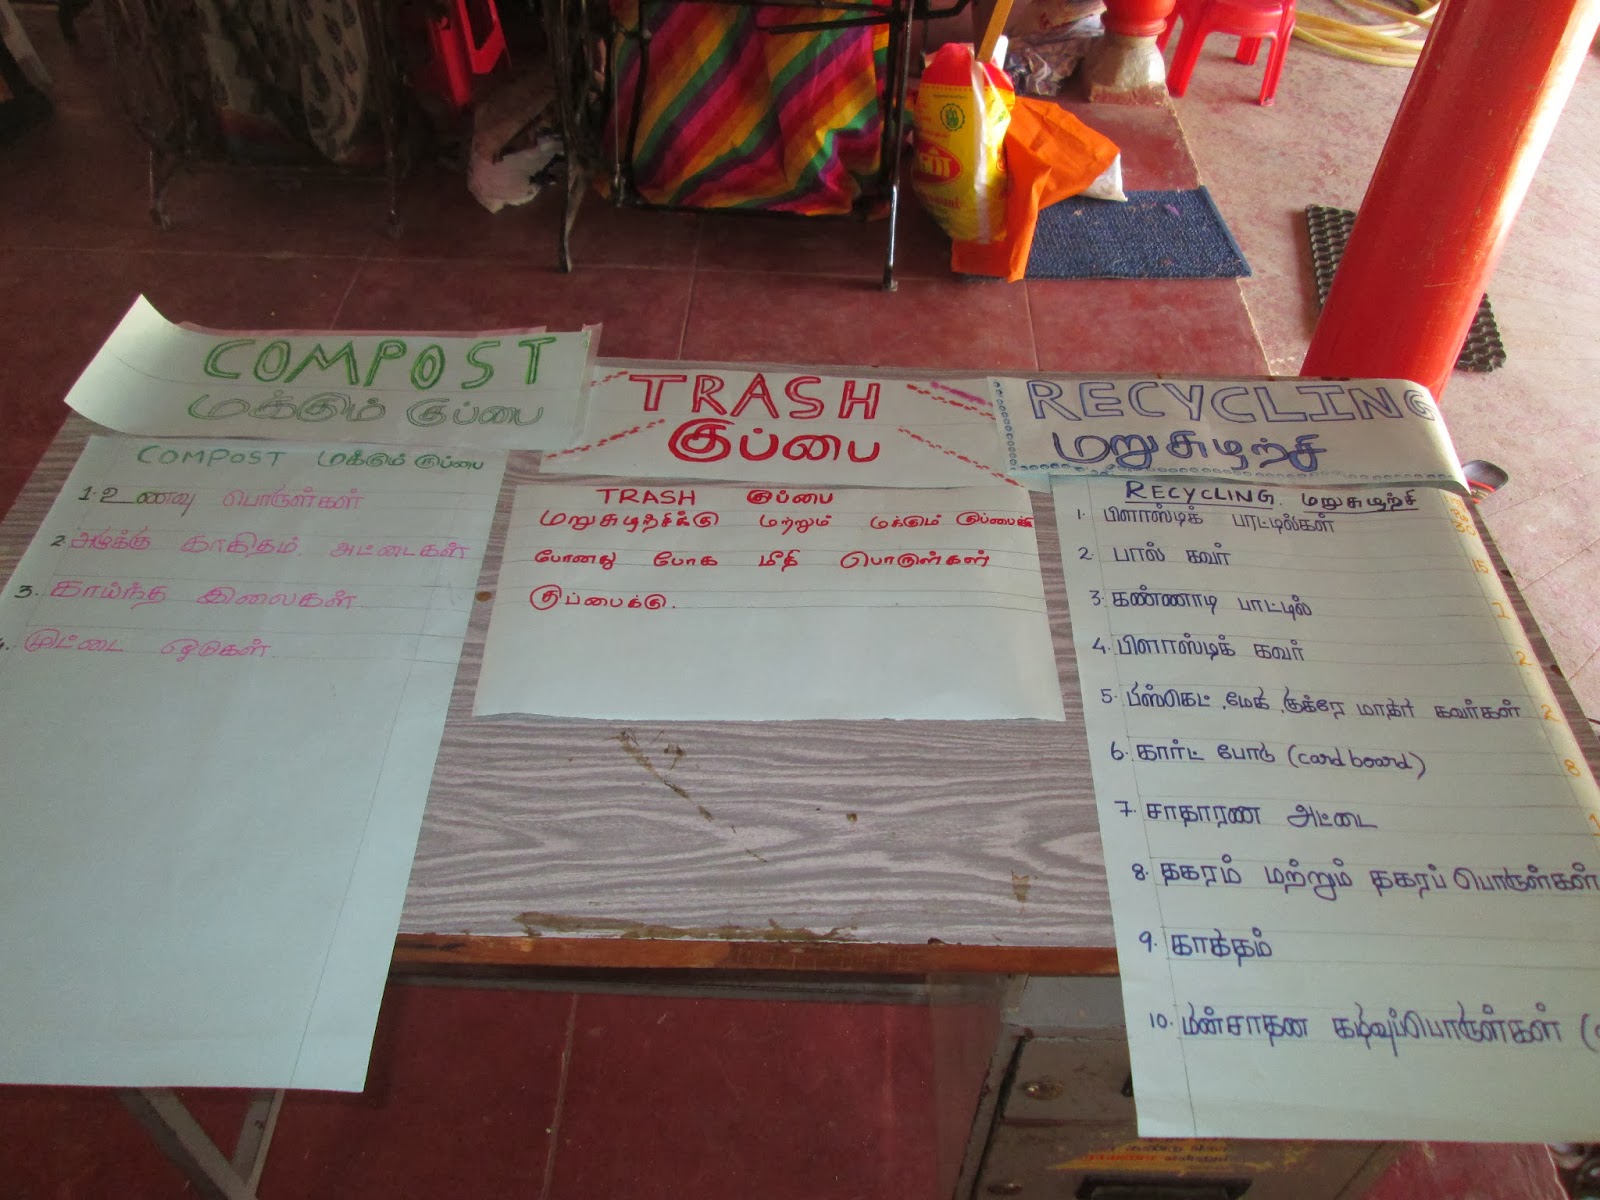 COMPOST
மக்கும் குப்பை
COMPOST மக்கும் குப்பை
1. உணவு பொருள்கள்
2. அழுக்கு காகிதம், அட்டைகள்
3. காய்ந்த இலைகள்.
4. முட்டை ஓடுகள்.
TRASH
குப்பை
TRASH குப்பை
மறுசுழற்சிக்கு மற்றும் மக்கும் குப்பைக்கு
போனது போக மீதி பொருள்கள்
குப்பைக்கு.
RECYCLING
மறுசுழற்சி
RECYCLING மறுசுழற்சி
1. பிளாஸ்டிக் பாட்டில்கள்
2. பால் கவர் 15
3. கண்ணாடி பாட்டில் 1
4. பிளாஸ்டிக் கவர் 2
5. பிஸ்கெட், மேகி, குக்ரே மாகர் கவர்கள் 2
6. கார்ட் போடு (card board) 8
7. சாதாரண அட்டை 1
8. தகரம் மற்றும் தகரப் பொருள்கள்
9. காகதம்
10. மின்சாதன கழிவுப்பொருள்கள் (